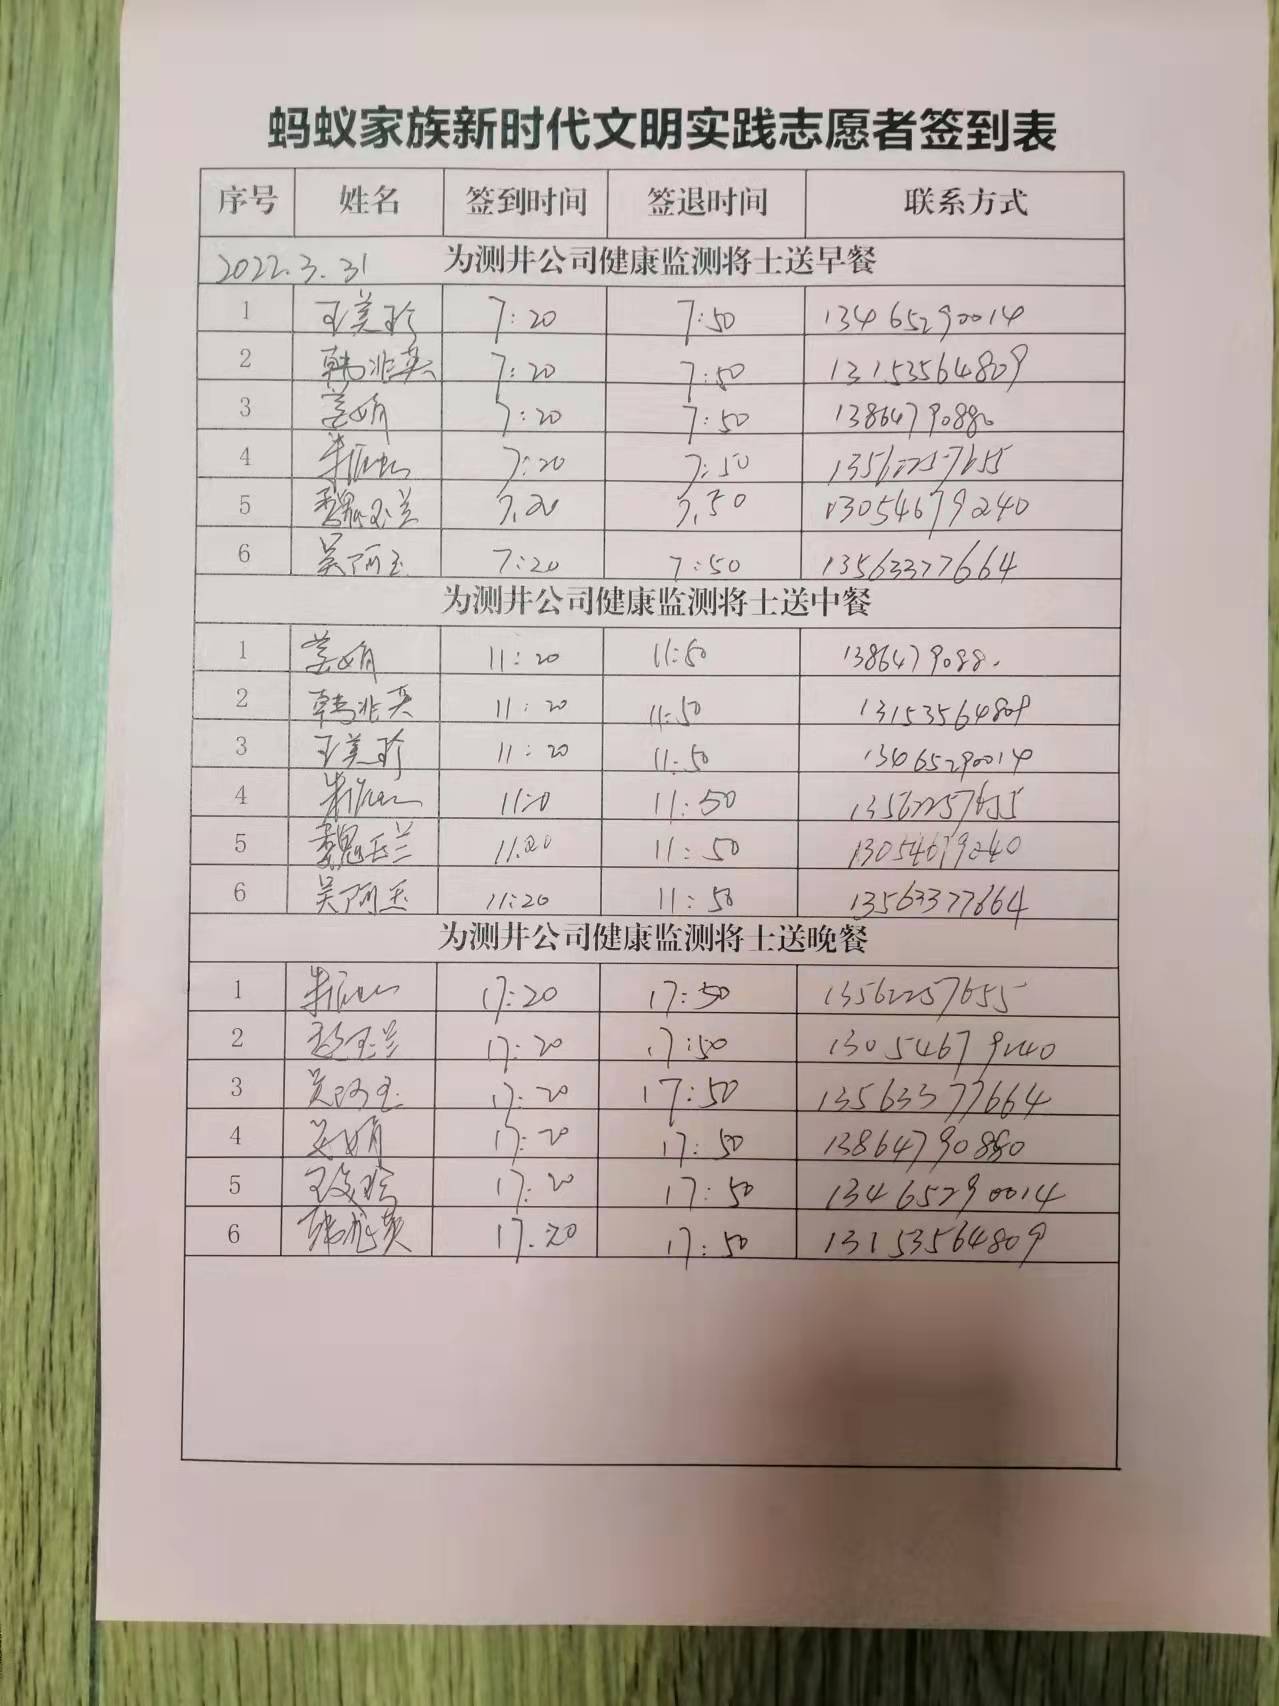 蚂蚁家族新时代文明实践志愿者签到表
序号 姓名 签到时间 签退时间 联系方式
2022.3.31 为测井公司健康监测将士送早餐
1 王美珍 7:20 7:50 13465290014
2 韩兆英 7:20 7:50 13153564809
3 7:20 7:50 13864790880
4 7:20 7:50 13562257655
5 魏玉兰 7.20 7.50 13054679240
6 吴阿玉 7:20 7:50 13563377664
为测井公司健康监测将士送中餐
1 11:20 11:50
2 韩兆英 11:20 11:50 13153564809
3 王美珍 11:20 11:50 13465290014
4 11:50 13562257655
5 魏玉兰 11.20 11:50 13054679240
6 吴阿玉 11:20 11:50 13563377664
为测井公司健康监测将士送晚餐
1 17:20 17:50 13562257655
2 17:20 17:50 13054679240
3 吴阿玉 17:20 17:50 13563377664
4 17:20 17:50 13864790880
5 王美珍 17:20 17:50 13465290014
6 韩兆英 17.20 17:50 13153564809